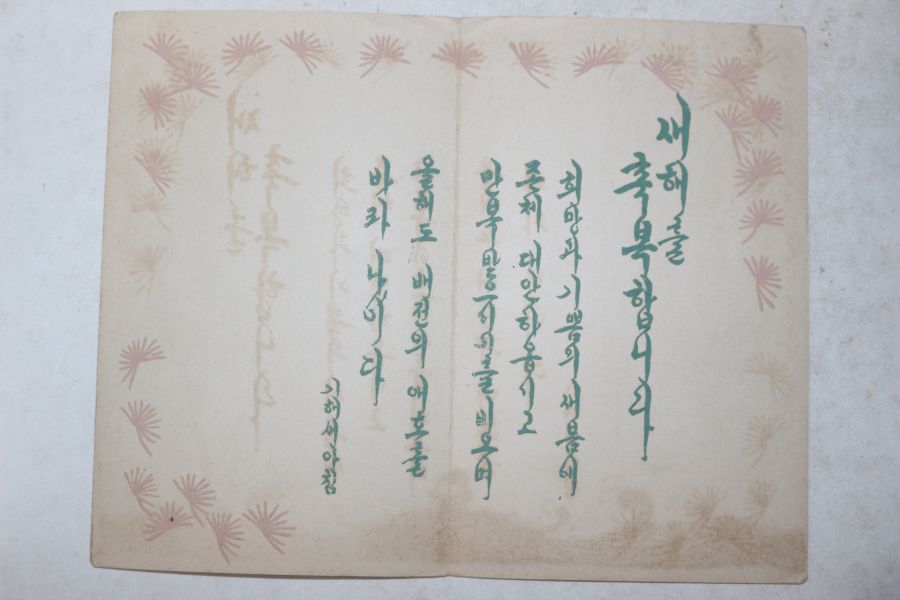 새해를
축복합니다
희망과 기쁨의 새봄에
존체 대안하옵시고
만복 받으시기를 비오며
올해도 배전의 애호를
바라나이다
기해 새아침